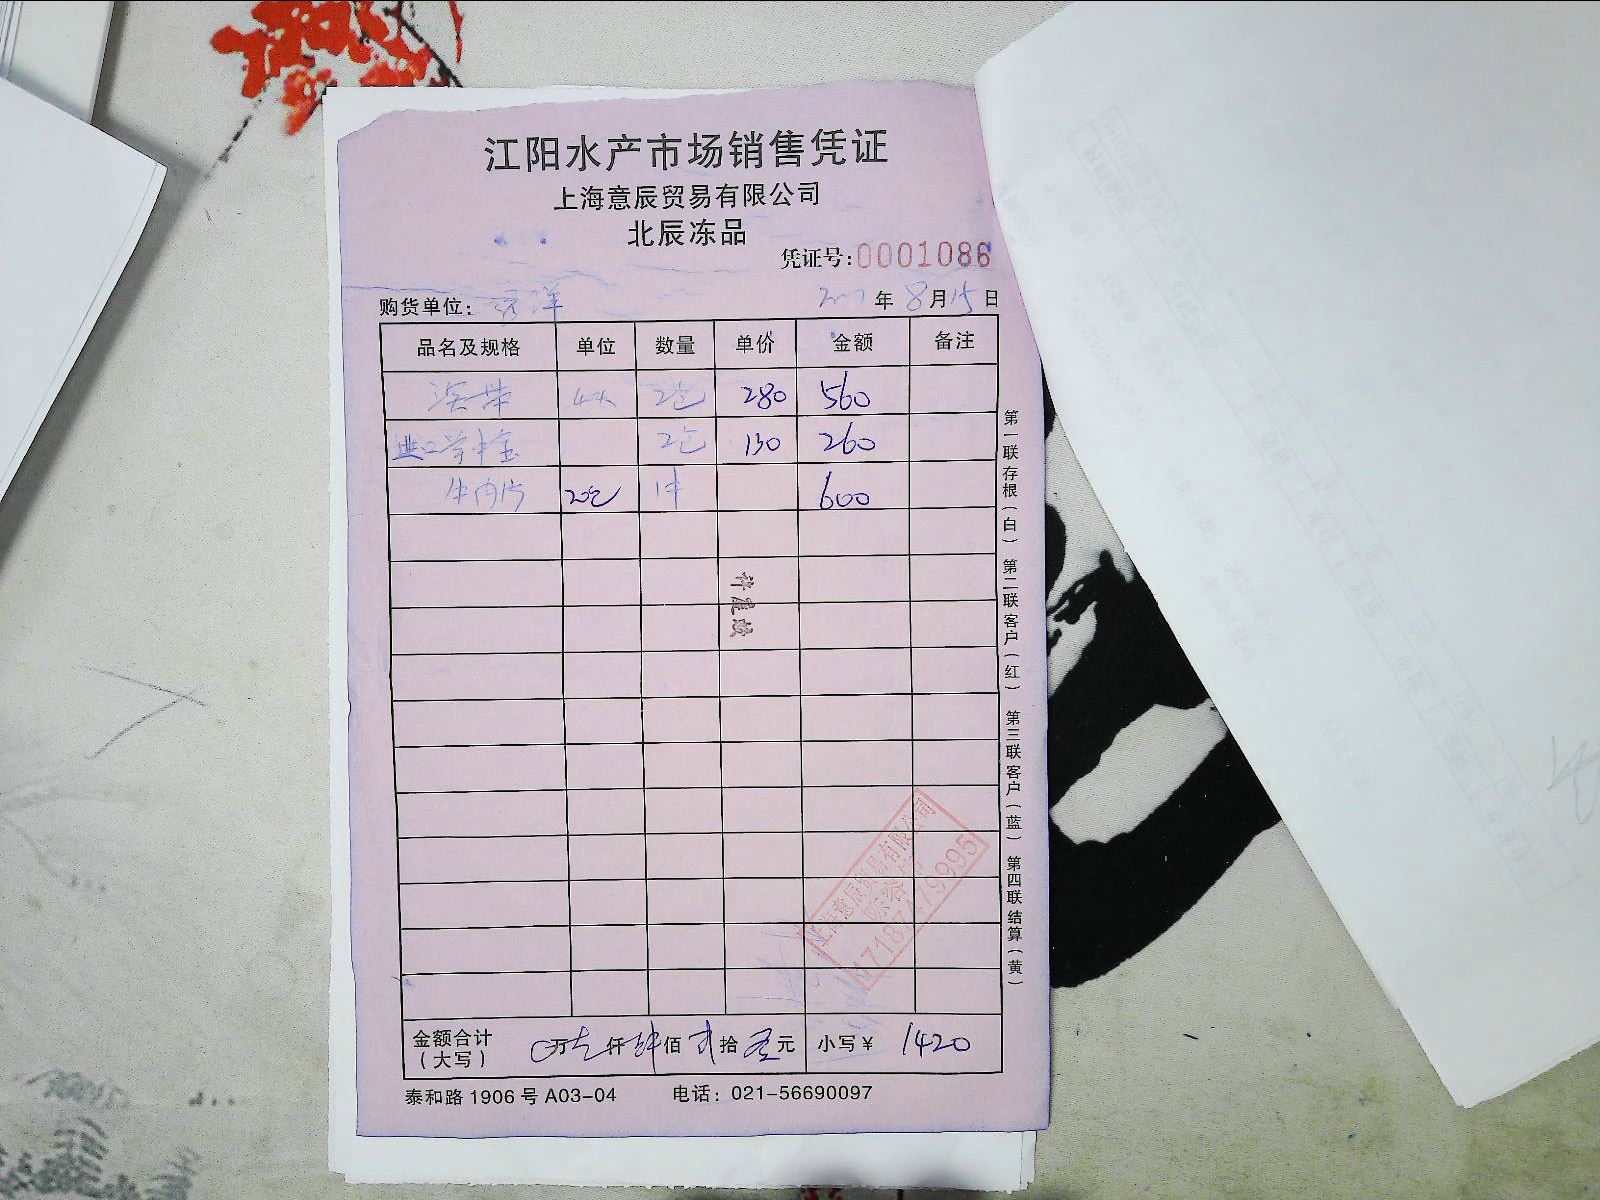 江阳水产市场销售凭证
上海意辰贸易有限公司
北辰冻品
凭证号:0001086
购货单位: 远洋 年8月15日
品名及规格 单位 数量 单价 金额 备注
2包 280 560
2包 130 260
牛肉片 20包 1件 600
上海意辰贸易有限公司
17187479995
金额合计(大写) 0万壹仟肆佰贰拾零元 小写¥ 1420
泰和路1906号A03-04 电话:021-56690097
第一联存根(白) 第二联客户(红) 第三联客户(蓝) 第四联结算(黄)